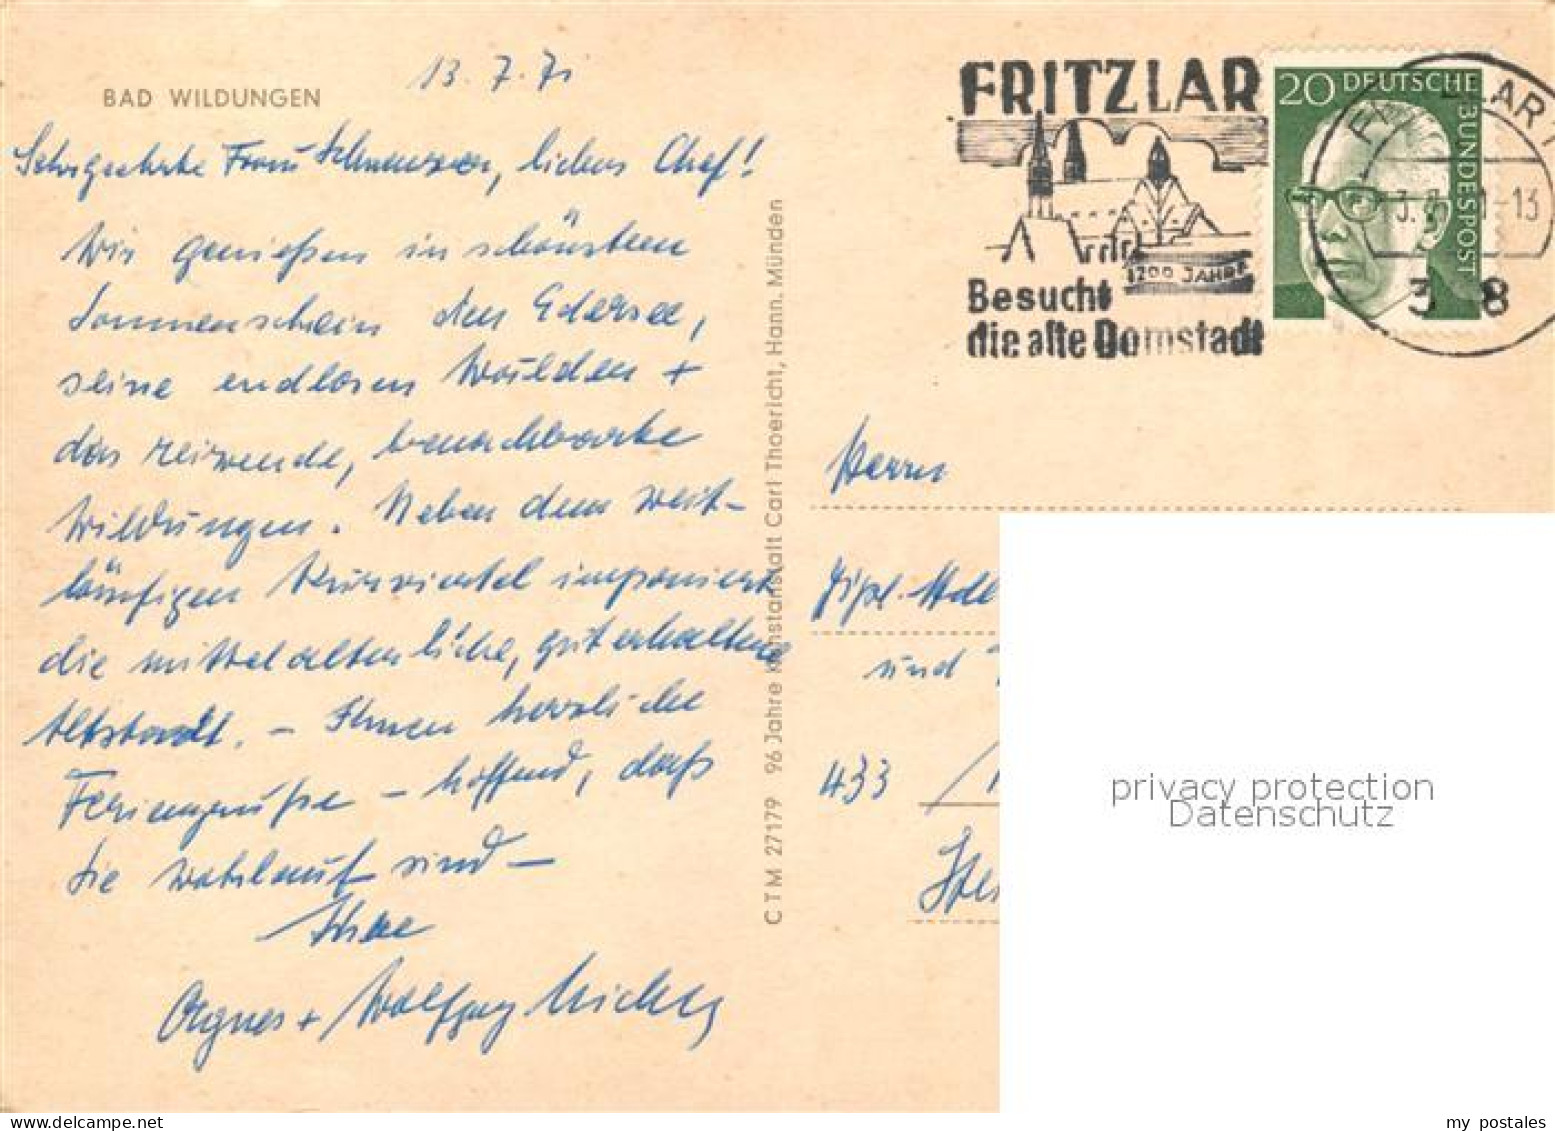 BAD WILDUNGEN
13.7.71
Sehrgeehrte Frau, liebes Chef!
Wir genießen in schönsten
Sonnenschein den Edersee,
seine endlosen Wälder +
das reizende, benachbarte
Wildungen. Neben dem weit-
läufigen Kurviertel imponiert
die mittelalterliche, guterhaltene
Altstadt. - Ihnen herzliche
Feriengrüße - hoffend, daß
Sie wohlauf sind -
Ihre
Agnes + Wolfgang
CTM 27179 96 Jahre Kunstanstalt Carl Thoericht, Hann. Münden
FRITZLAR
1200 JAHRE
Besucht
die alte Domstadt
20 DEUTSCHE
BUNDESPOST
Herrn
Dipl.
und
433
privacy protection
Datenschutz
my postales